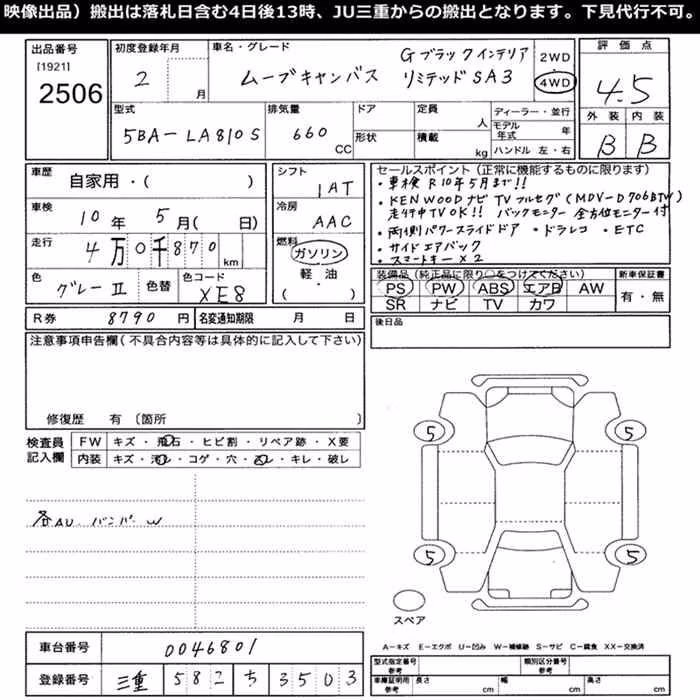 映像出品）搬出は落札日含む4日後13時、JU三重からの搬出となります。下見代行不可。
出品番号
[1921]
2506
初度登録年月
2 月
車名・グレード
ムーブキャンバス
Gブラックインテリア
リミテッドSAⅢ
2WD
4WD
評価点
4.5
外装 内装
B B
型式
5BA-LA810S
排気量
660 CC
ドア
形状
定員 人
積載 kg
ディーラー・並行
モデル年式 年
ハンドル 左・右
車歴
自家用・( )
車検
10年 5月( 日)
走行
4万0千870km
色
グレーⅡ
色替
色コード
XE8
シフト
1AT
冷房
AAC
燃料
ガソリン
軽・油
・( )
セールスポイント（正常に機能するものに限ります）
・車検 R10年5月まで!!
・KENWOODナビ TVフルセグ(MDV-D706BTW)
走行中TV OK!! バックモニター 全方位モニター付
・両側パワースライドドア ・ドラレコ ・ETC
・サイドエアバック
・スマートキー×2
装備品（純正品に限り○をつけてください）
PS PW ABS エアB AW
SR ナビ TV カワ
新車保証書
有・無
R券 8790円
名変通知期限 月 日
後日品
注意事項申告欄（不具合内容等は具体的に記入して下さい）
修復歴 有〔箇所 〕
検査員
記入欄
FW キズ・飛石・ヒビ割・リペア跡・X要
内装 キズ・汚れ・コゲ・穴・・キレ・破レ
各AU バンパーW
5
5
5
5
スペア
A－キズ E－エクボ U－凹み W－補修跡 S－サビ C－腐食 XX－交換済
車台番号 0046801
登録番号 三重 582 ち 3503
型式指定番号
参考
類別区分番号
参考
車庫証明用
参考
長さ cm
幅 cm
高さ cm